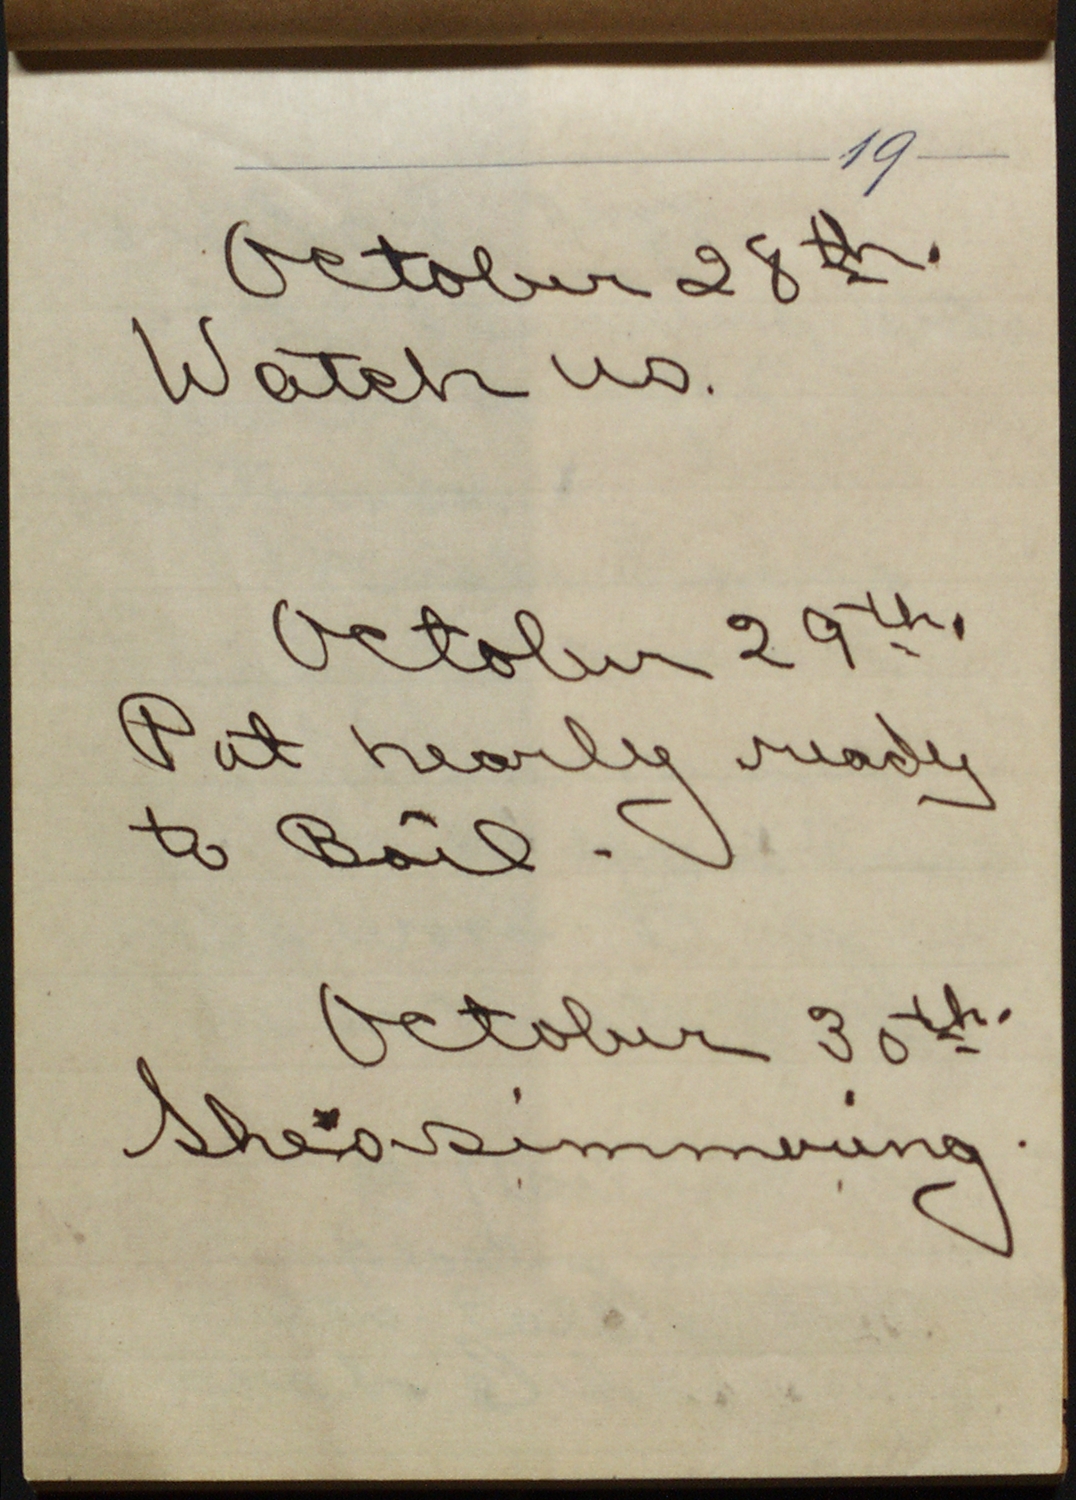 19
October 28th.
Watch us.
October 29th.
Pot nearly ready
to Boil.
October 30th.
She's simmering.